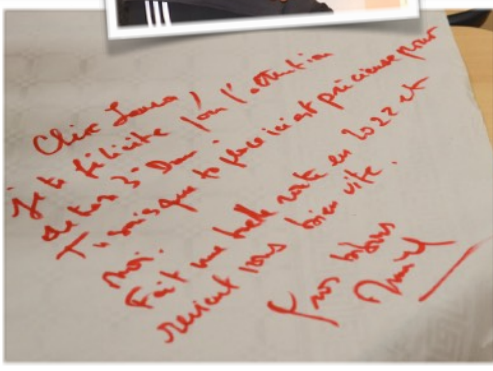 Chère Laura,
Je te félicite pour l'obtention
de ton 3e Dan.
Tu sais que ta place ici est précieuse pour
moi.
Fait une belle route en 2022 et
revient nous bien vite.
Gros bisous